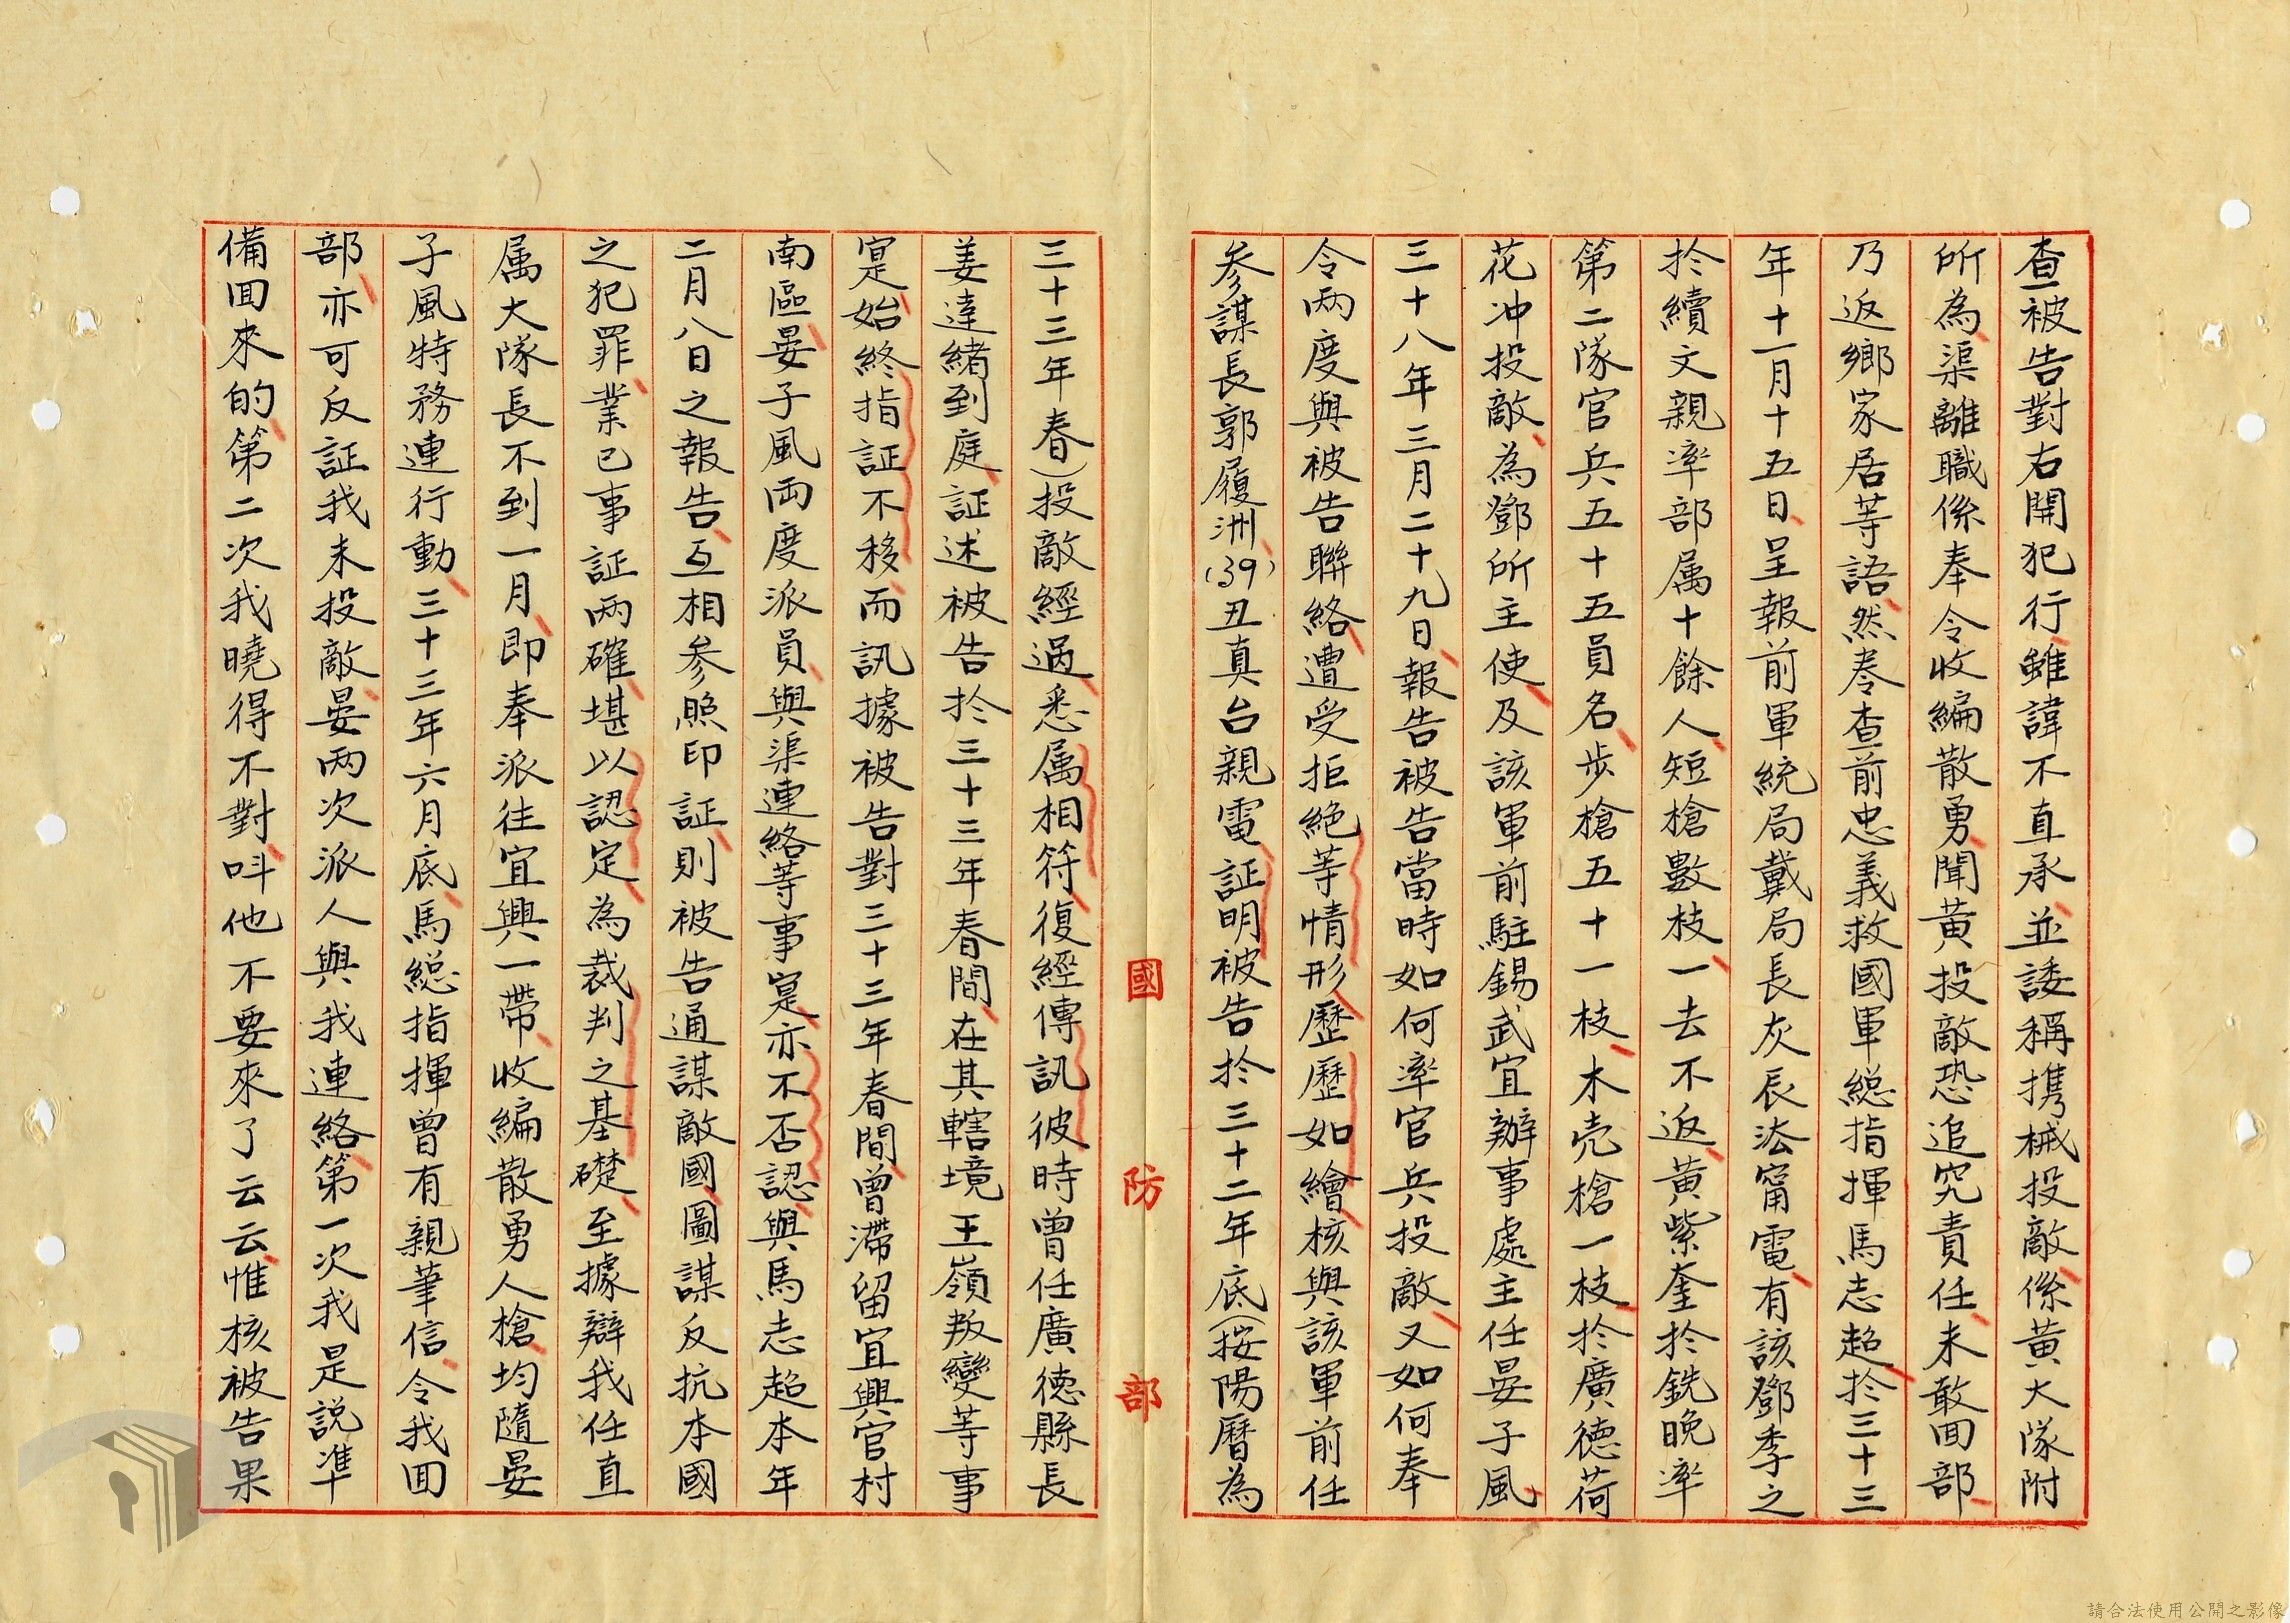 查被告對右開犯行雖諱不直承並諉稱携械投敵係黃大隊附
所為渠離職係奉令收編散勇聞黃投敵恐追究責任未敢回部
乃返鄉家居等語然卷查前忠義救國軍總指揮馬志超於三十三
年十一月十五日呈報前軍統局戴局長灰辰法甯電有該鄧季之
於續文親率部属十餘人短槍數枝一去不返黃紫奎於銑晚率
第二隊官兵五十五員名步槍五十一枝木壳槍一枝於廣德荷
花冲投敵為鄧所主使及該軍前駐錫武宜辦事處主任晏子風
三十八年三月二十九日報告被告當時如何率官兵投敵又如何奉
令兩度與被告聯絡遭受拒絕等情形歷歷如繪核與該軍前任
參謀長郭履洲(39)丑真台親電証明被告於三十二年底(按陽曆為
三十三年春)投敵經過悉属相符復經傳訊彼時曾任廣德縣長
姜達緒到庭証述被告於三十三年春間在其轄境王嶺叛變等事
寔始終指証不移而訊據被告對三十三年春間曾滯留宜興官村
南區晏子風両度派員與渠連絡等事寔亦不否認與馬志超本年
二月八日之報告互相參照印証則被告通謀敵國圖謀反抗本國
之犯罪業已事証兩確堪以認定為裁判之基礎至據辯我任直
属大隊長不到一月即奉派往宜興一帶收編散勇人槍均隨晏
子風特務連行動三十三年六月底馬總指揮曾有親筆信令我回
部亦可反証我未投敵晏兩次派人與我連絡第一次我是說準
備回來的第二次我曉得不對叫他不要來了云云惟核被告果
國防部
請合法使用公開之影像